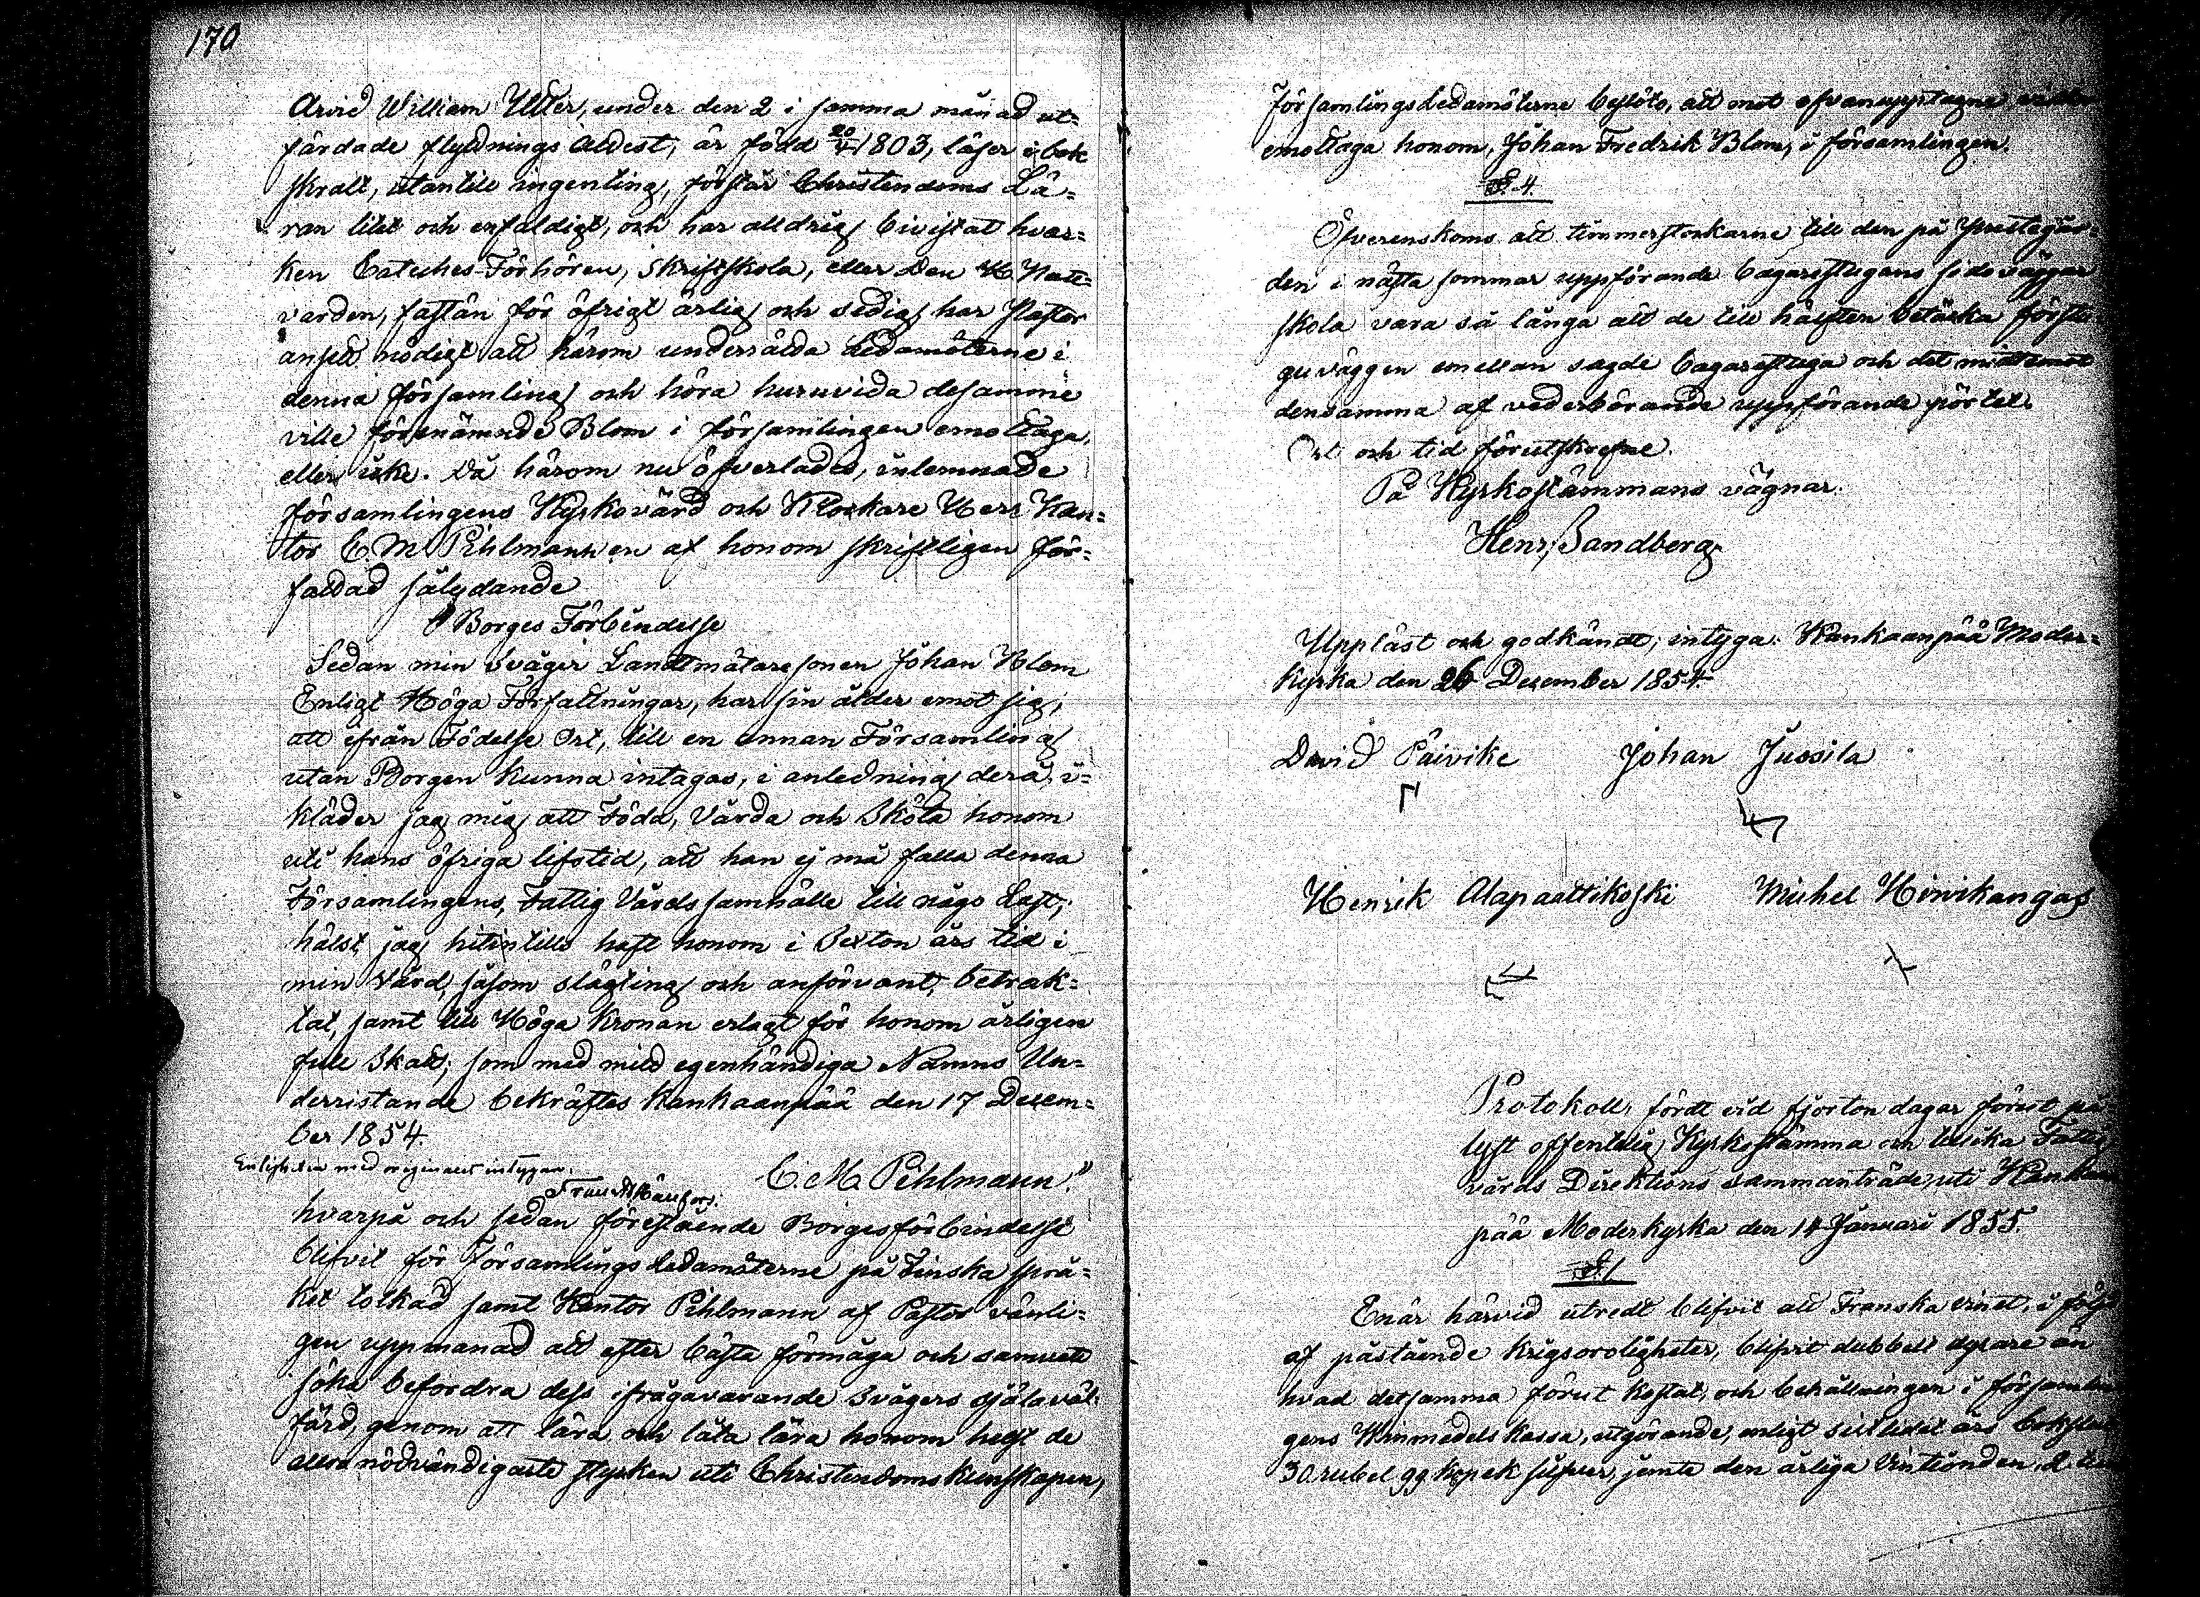 170
Arvid William Utter, under den 2 i samma månad ut=
färdade flyttnings attest, är född 20/V 1803, läser i bok
skralt, utantill ingenting, förstår Christendoms Lä=
ran litet och enfaldigt, och har alldrig bivistat hvar=
ken Cateches-Förhören, Skriftskola, eller Den H. Natt=
varden, fastän för öfrigt ärlig och sedig, har Pastor
ansett nödigt att härom underrätta Ledamöterne i
denna församling och höra huruvida desamme
ville förenämnde Blom i församlingen emottaga,
eller icke. Då härom nu öfverlades, inlemnade
församlingens Kyrkovärd och Klockare Herr Kan=
tor C. M. Pihlmann en af honom skriftligen för=
fattad sålydande
Borges Förbindesse
Sedan min Svåger Landtmätaresonen Johan Blom
Enligt Höga Författningar, har sin ålder emot sig,
att ifrån Födelse Ort, till en annan Församling
utan Borgen kunna intagas, i anledning deraf, i=
kläder jag mig att Föda, Vårda och Sköta honom
uti hans öfriga lifstid, att han ej må falla denna
Församlingens, Fattig Vårds samhälle till någo Last,
hälst jag hitintills haft honom i Sexton års tid i
min Vård, såsom slägting och anförvant, betrak=
tat, samt till Höga Kronan erlagt för honom årligen
full Skatt; som med mitt egenhändiga Namns Un=
derristande bekräftes Kankaanpää den 17 Decem=
ber 1854.
C. M. Pihlmann."
Enligheten med originalet intygar.
Frans
hvarpå och sedan förestående Borgesförbindesse
blifvit för Församlings Ledamöterne på Finska språ=
ket tolkad samt Kantor Pihlmann af Pastor vänli=
gen uppmanad att efter bästa förmåga och samvete
söka befordra dess ifrågavarande Svågers själaväl=
färd, genom att lära och låta lära honom helst de
allranödvändigaste stycken uti Christendomskunskapen,
Församlings Ledamöterne beslöto, att mot ofvanupptagne
emottaga honom, Johan Fredrik Blom, i församlingen.
§ 4.
Öfverenskoms att timmerstockarne till den på Prestegår
den i nästa sommar uppförande bagarestugans sidoväggar
skola vara så långa att de till hälften betäcka förstu
guväggen emellan sagde bagarestuga och det midt emot
densamma af vederbörande uppförande pörtet.
Ort och tid förutskrefne.
På Kyrkostämmans vägnar.
Henr. Sandberg
Uppläst och godkändt, intyga: Kankaanpää Moder=
kyrka den 26 December 1854.
David Päivike Johan Jussila
Henrik Alapaattikoski Michel Hinikangas
Protokoll, fördt vid fjorton dagar förut på
lyst offentelig Kyrkostämma och tillika Fattig
vårds Direktions sammanträde uti Kankaan
pää Moderkyrka den 14 Januari 1855.
§. 1
Enär härvid utredt blifvit att Franska vinet, i följd
af påstående krigsoroligheter, blifvit dubbelt dyrare än
hvad detsamma förut kostat, och behållningen i församlin
gens Winmedels kassa, utgörande, enligt sistlidet års
30 rubel 99 kopek silfver, jemte den årliga Vintionden,